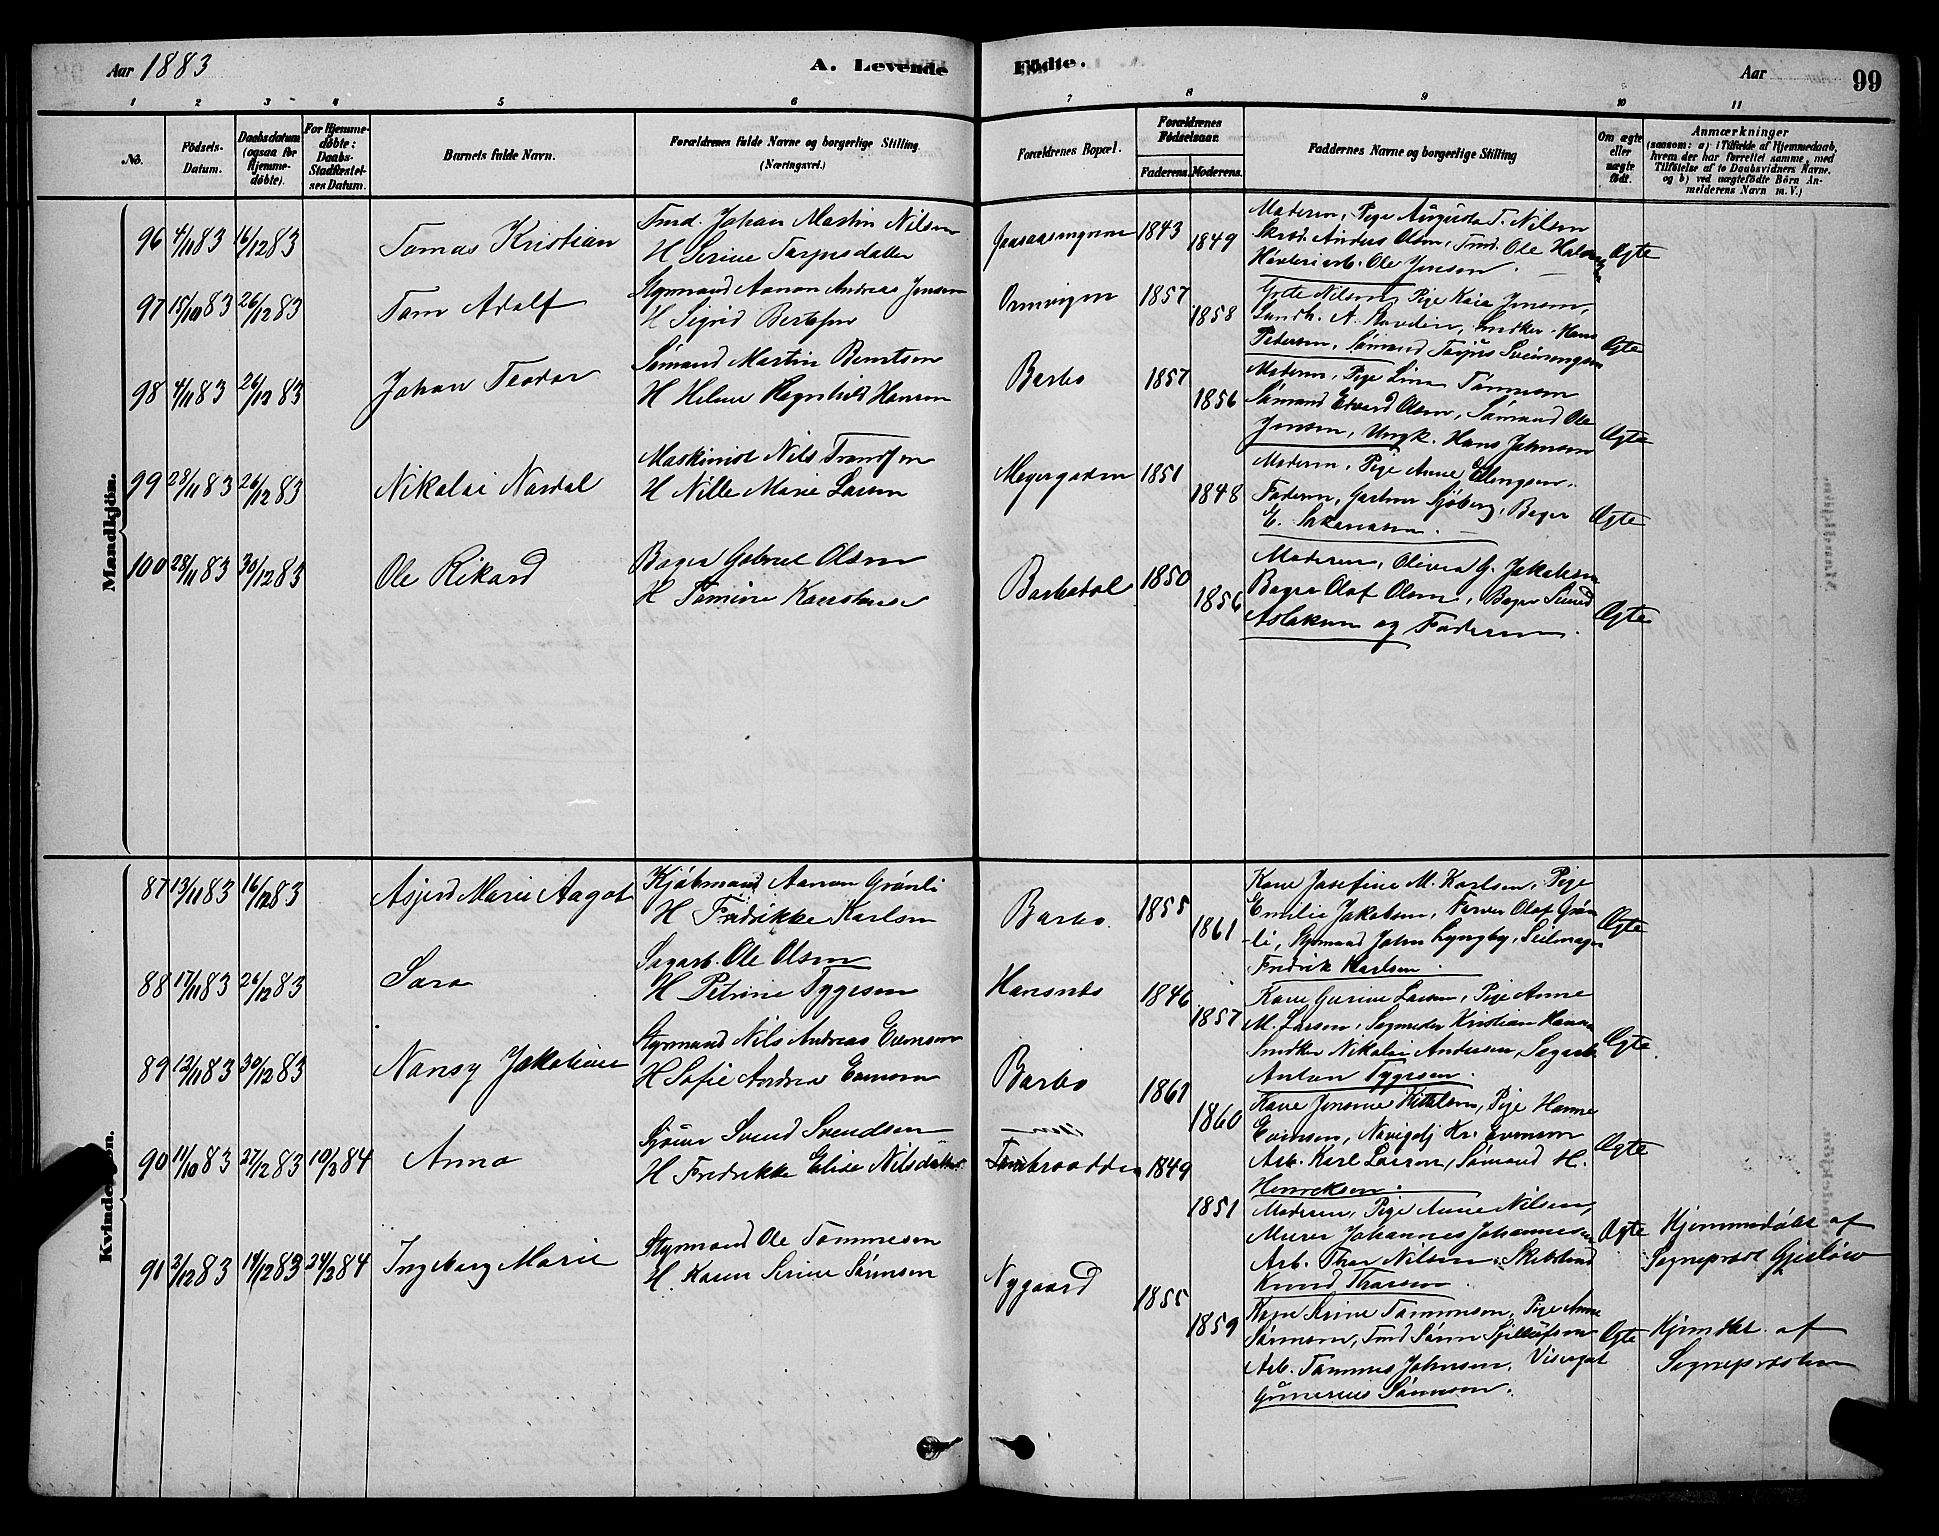 Aar 1883
A. Levende Födte.
Aar
99
1 2 3 4 5 6 7 8 9 10 11
No.
Födsels-Datum.
Daabsdatum (ogsaa for Hjemmedöbte).
For Hjemmedöbte: Daabs-Stadfæstelses Datum.
Barnets fulde Navn.
Forældrenes fulde Navne og borgerlige Stilling (Næringsvei.)
Forældrenes Bopæl.
Forældrenes Födselsaar.
Faderens. Moderens.
Faddernes Navne og borgerlige Stilling
Om ægte eller uægte födt.
Anmærkninger
(saasom: a) i Tilfælde af Hjemmedaab, hvem der har forrettet samme, med Tilföielse af to Daabsvidners Navne, og b) ved uægtefödte Börn Anmelderens Navn m. V.)
Mandkjön.
96 4/11 83 16/12 83 Tomas Kristian
Tmd. Johan Martin Nilsen
H Serine Tarjusdatter
1843 1849
Moderen, Pige Augusta T. Nilsen
Skrd. Anders Olsen, Tmd. Ole Halvor
Ole Jensen.
Ægte
97 15/10 83 26/12 83 Tom Adolf
Styrmand Aanon Andreas Jensen
H Sigrid Bertofsen
Ormvigen 1857 1858
Grete Nilsen, Pige Kaia Jensen,
Hans
Pedersen, Sömand Tarjus Sveinungsen
Ægte
98 4/11 83 26/12 83 Johan Teodor
Sömand Martin Berntsen
H Helene Ragnhild Hansen
Barbo 1857 1856
Moderen, Pige Lina Tommesen
Sömand Edvard Olsen, Sömand Ole
Jensen, Ungk. Hans Johnsen
Ægte
99 28/11 83 26/12 83 Nikolai Nordal
Maskinist Nils Trondsen
H Nille Marie Larsen
Meyergaden 1851 1848
Moderen, Pige Anne Ellingsen,
Faderen, Gartner Sjöberg, Bager
E. Sakariasen.
Ægte
100 28/11 83 30/12 83 Ole Rikard
Bager Gabriel Olsen
H Tomine
Barbodal 1850 1856
Moderen, Olivia G. Jakobsen
Bager Olaf Olsen, Bager
Aslaksen og Faderen.
Ægte
Kvindekjön.
87 13/11 83 16/12 83 Asjerd Marie Aagot
Kjöbmand Aanon Grönli
H Fredrikke Karlsen
Barbo. 1855 1861
Kone Josefine M. Karlsen, Pige
Emilie Jakobsen, Farver Olaf Grön
li, Styrmand John Lyngby, Seilmager
Fredrik Karlsen.
Ægte
88 17/11 83 26/12 83 Sara
Sagarb. Ole Olsen
H Petrine Tygesen
Hansnes 1846 1857
Kone Gurine Larsen, Pige Anne
M. Larsen, Sagmester Kristian Hansen
Smdker Nikolai Andersen, Sagarb.
Anton Tygesen.
Ægte
89 12/11 83 30/12 83 Nansy Jakobine
Styrmand Nils Andreas Evensen
H Sofie Andrea Evensen
Barbo 1861 1860
Kone Jensine Kittelsen, Pige Hanne
Evensen, Navigatj. Kr. Evensen
Arb. Karl Larsen, Sömand H.
Henriksen.
Ægte
90 11/10 83 27/12 83 10/2 84 Anna
Svend Svendsen
H Fredrikke Elise Nilsdatter
1849 1851
Moderen, Pige Anne Nilsen,
Murer Johannes Johannesen
Arb. Thor Nilsen, Skibstmd
Knud Thorsen.
Ægte Hjemmedöbt af
Sogneprest Gjerlöw
91 2/12 83 14/12 83 24/2 84 Ingeborg Marie
Styrmand Ole Tommesen
H. Karen Serine Sörensen
Nygaard 1855 1859
Serine Tommesen, Pige Anne
Sörensen, Tmd Sören
Arb. Tommes Johnsen, Visergut
Gunerius Sörensen.
Ægte Hjemdbt. af
Sognepresten